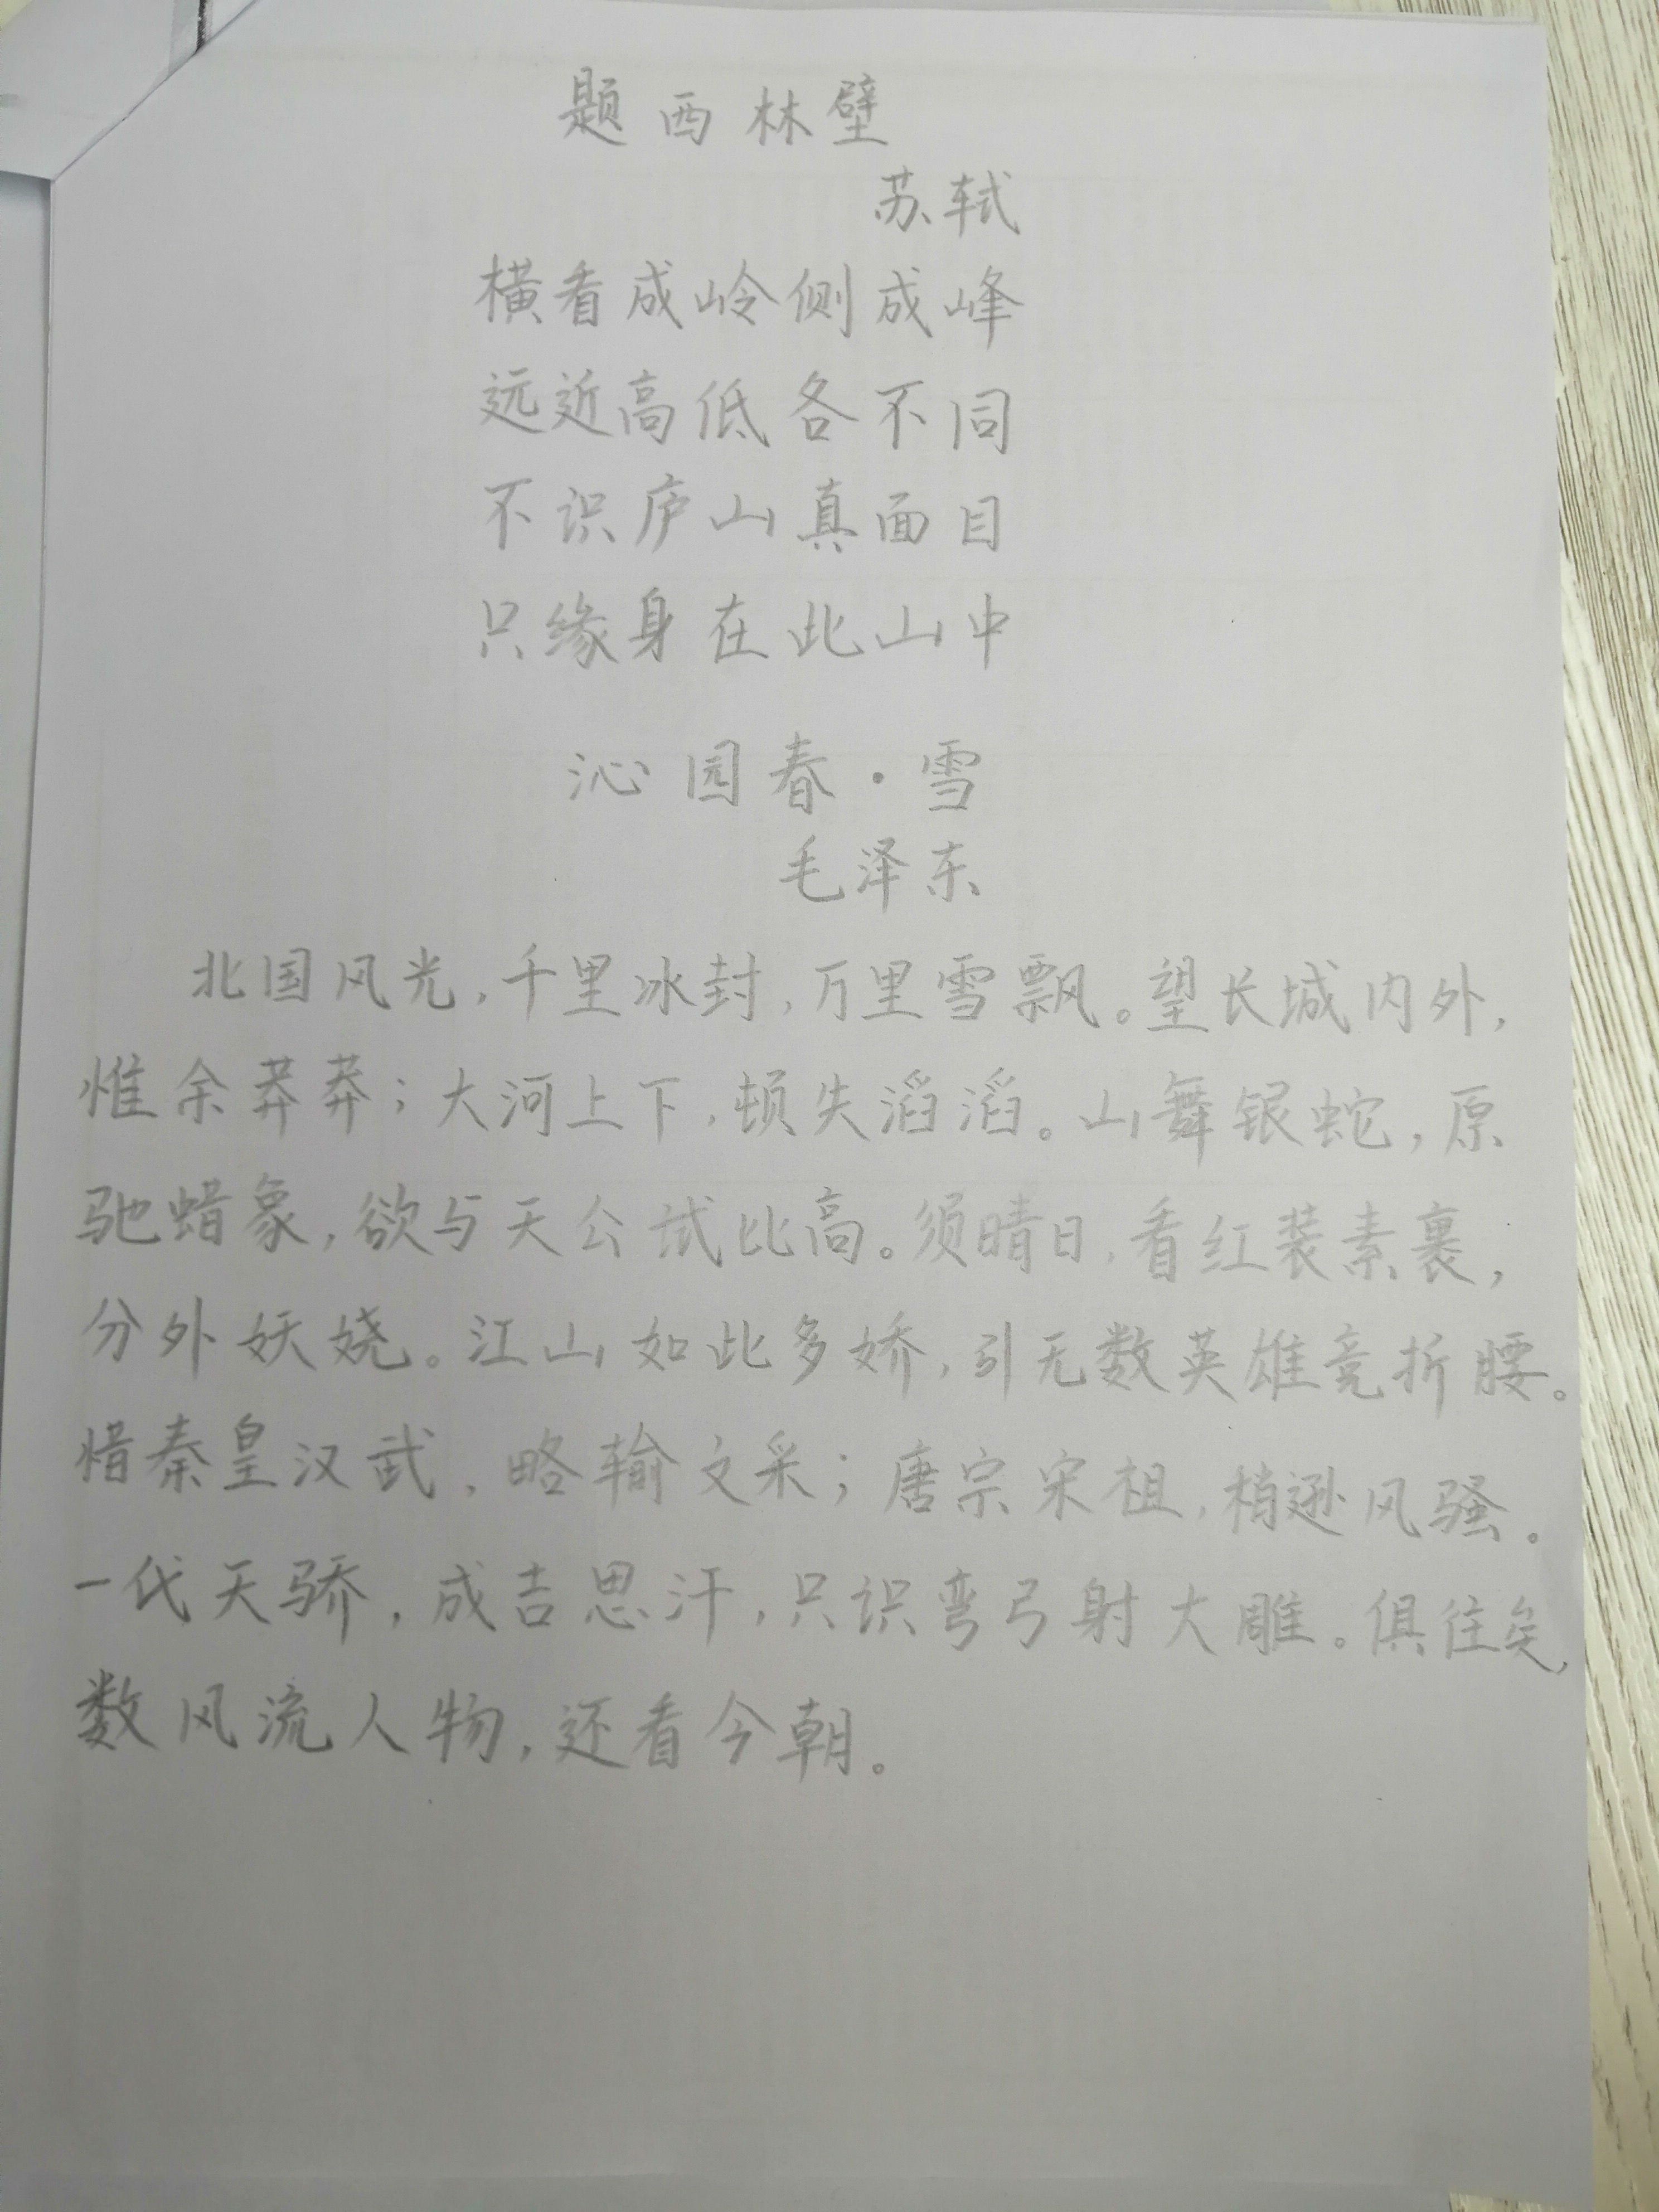 题西林壁
苏轼
横看成岭侧成峰
远近高低各不同
不识庐山真面目
只缘身在此山中
沁园春·雪
毛泽东
北国风光,千里冰封,万里雪飘。望长城内外,
惟余莽莽;大河上下,顿失滔滔。山舞银蛇,原
驰蜡象,欲与天公试比高。须晴日,看红装素裹,
分外妖娆。江山如此多娇,引无数英雄竞折腰。
惜秦皇汉武,略输文采;唐宗宋祖,稍逊风骚。
一代天骄,成吉思汗,只识弯弓射大雕。俱往矣,
数风流人物,还看今朝。